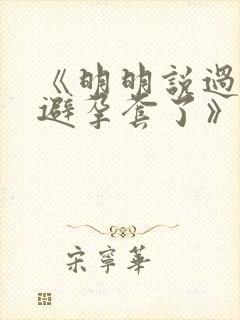 《明明說過
避孕套了》
宋寧華